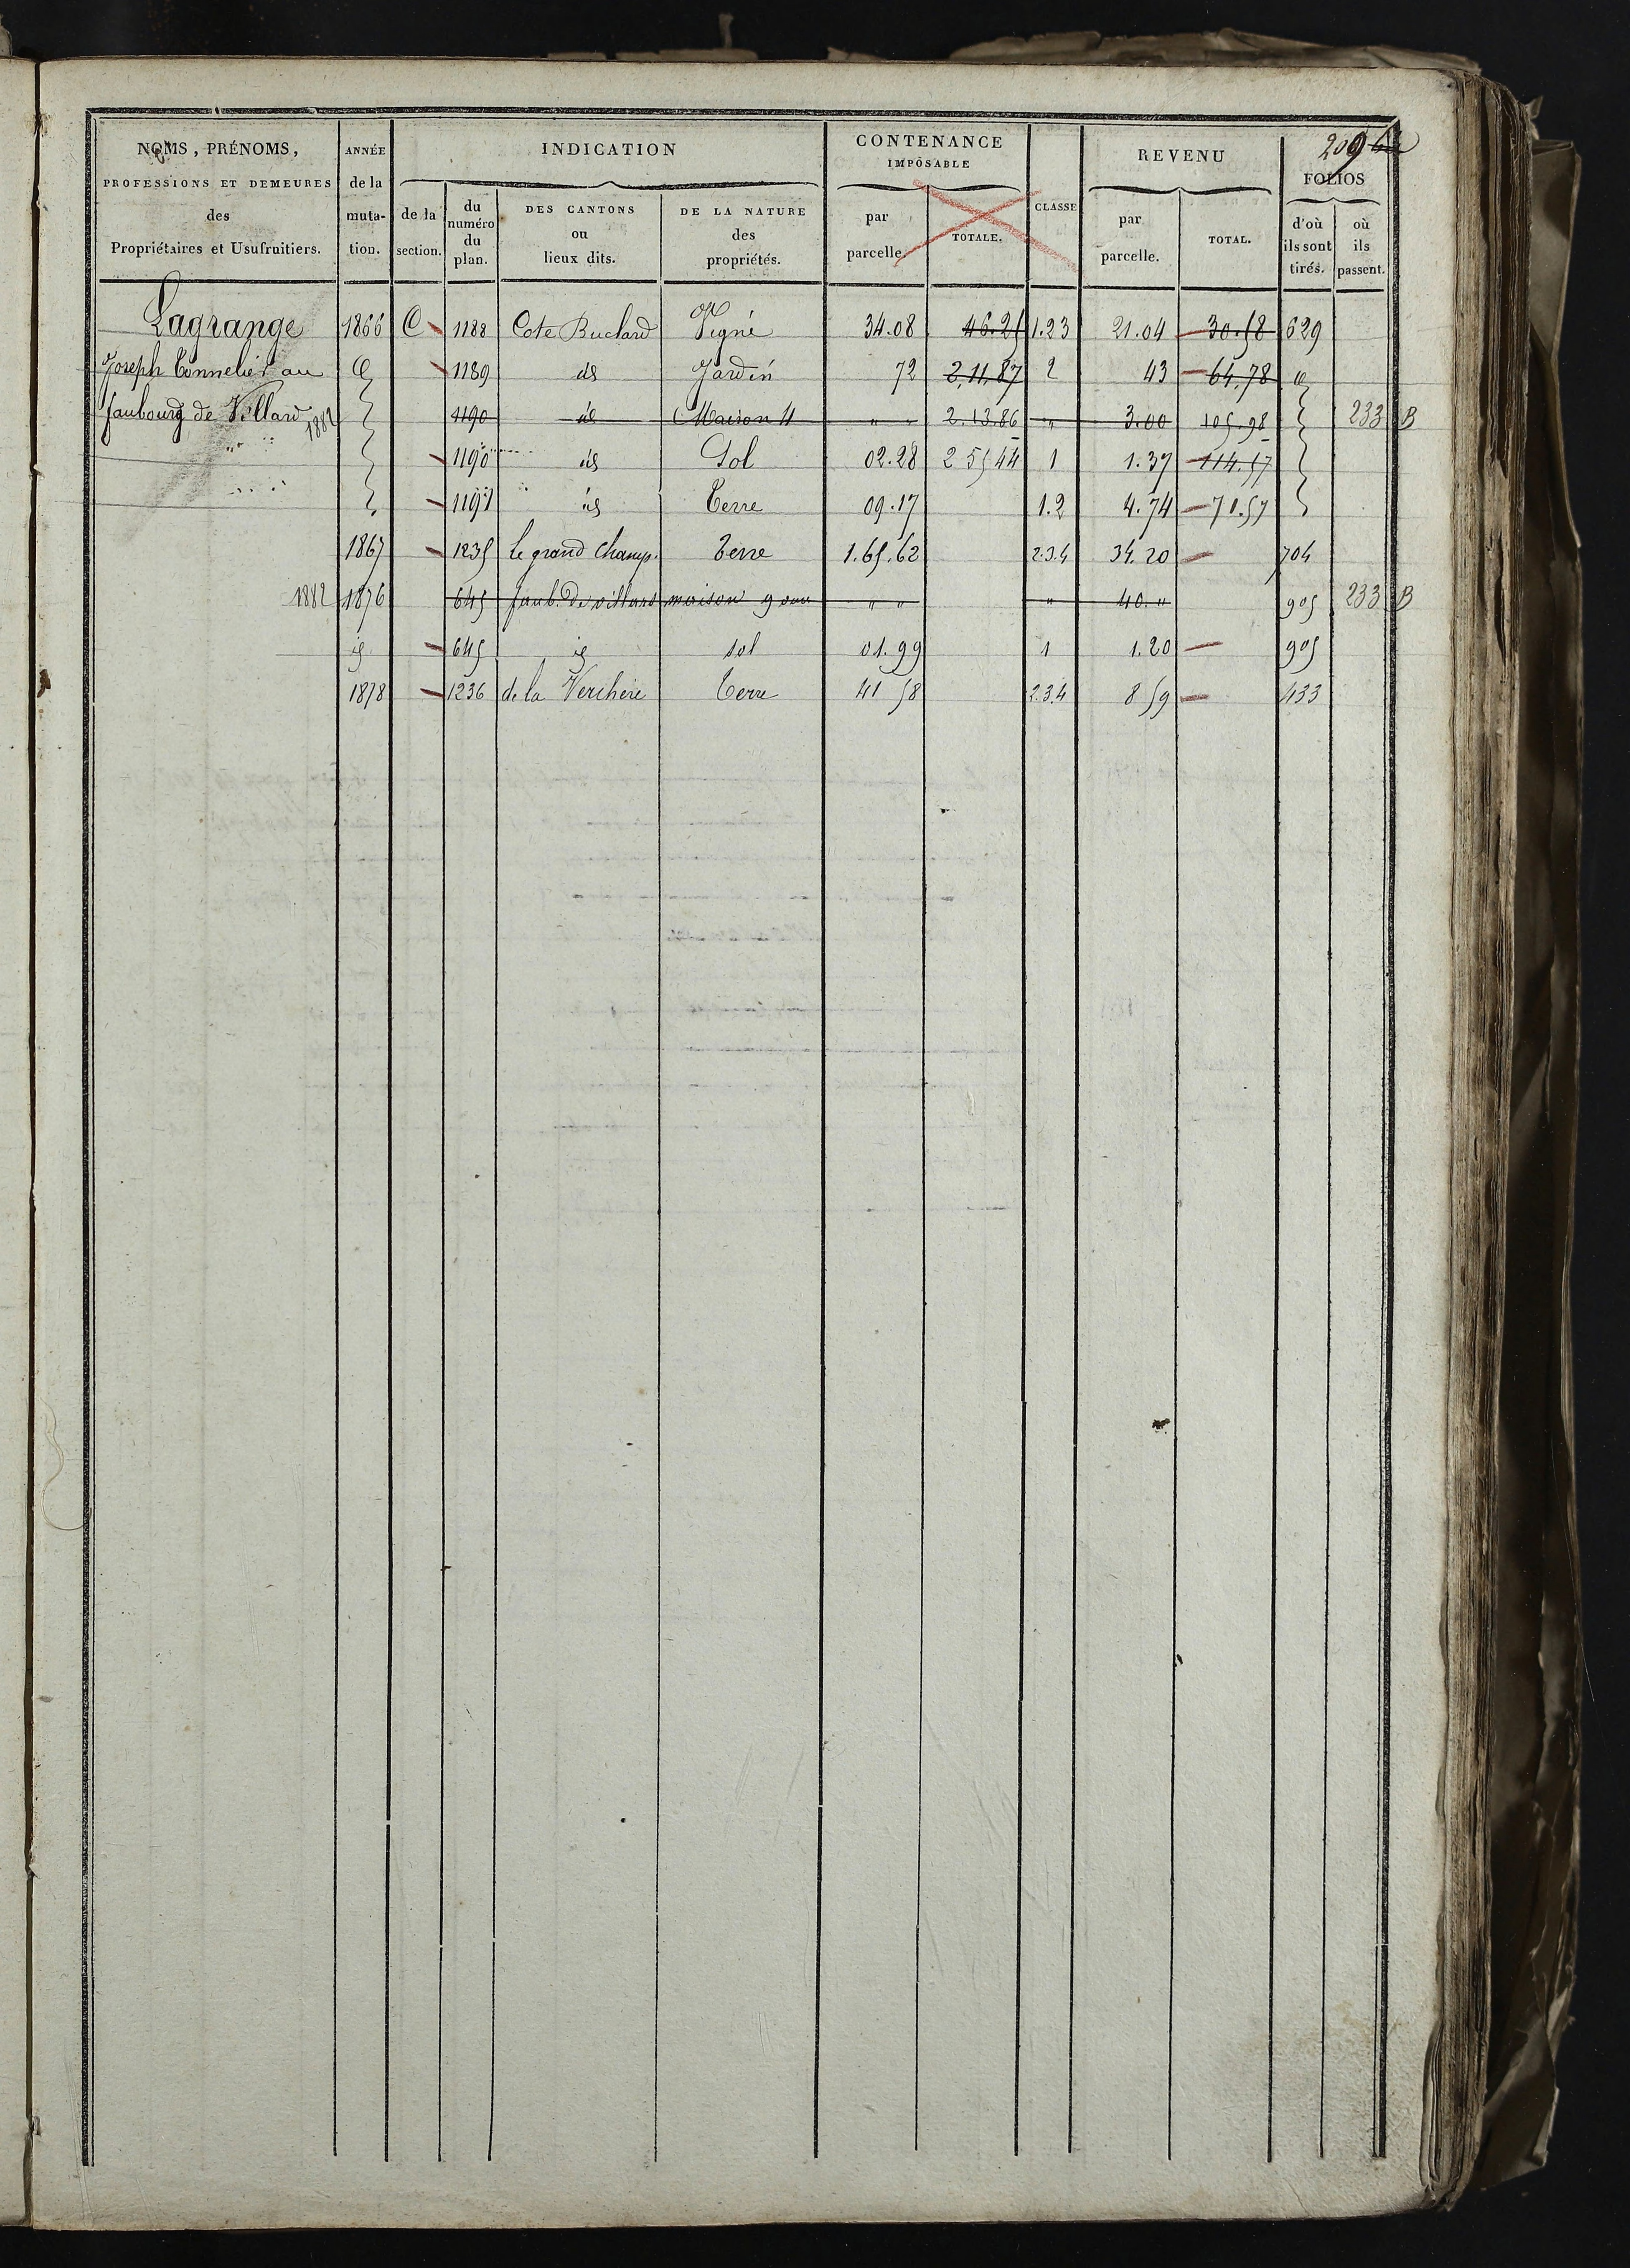 209
NOMS, PRÉNOMS, PROFESSIONS ET DEMEURES des Propriétaires et Usufruitiers.
ANNÉE de la mutation.
INDICATION
de la section.
du numéro du plan.
DES CANTONS ou lieux dits.
DE LA NATURE des propriétés.
CONTENANCE IMPOSABLE
par parcelle.
TOTALE.
CLASSE
REVENU
par parcelle.
TOTAL.
FOLIOS
d'où ils sont tirés.
où ils passent.
Lagrange 1866 C 1188 Cote Buclard Vigne 34.08 46.25 1.2.3 21.04 30.58 629
Joseph Tonnelier au 1189 id Jardin 72 2.11.87 2 43 64.78
faubourg de Villard 1882 1190 id Maison 4 " " 2.13.86 " 3.00 105.98 233 B
1190 id Sol 02.28 2 55 44 1 1.37 114.57
1191 id Terre 09.17 1.2 4.74 71.57
1867 1235 Le grand Champ. Terre 1.65.62 2.3.4 34.20 704
1882 1876 645 faub. de villars maison 9 ouv " " " 40. " 905 233 B
id 645 id sol 01.99 1 1.20 905
1878 1236 de la Verchère Terre 41 58 2.3.4 8 59 433